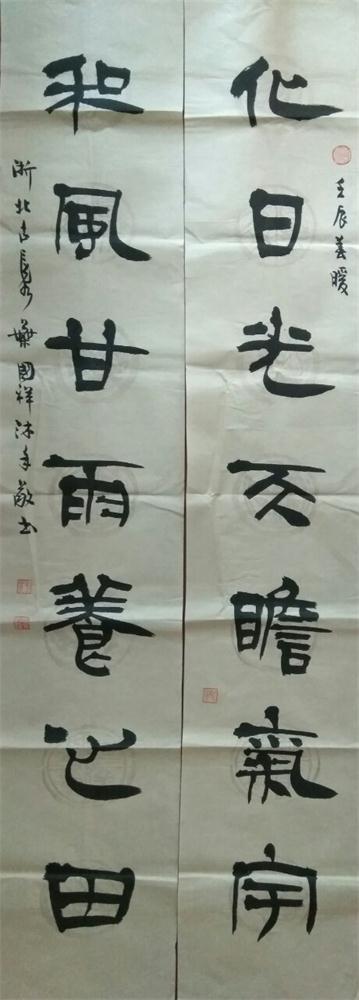 壬辰春暖
化日光天瞻氣宇
和風甘雨養心田
浙北古長興 國祥沐手敬書